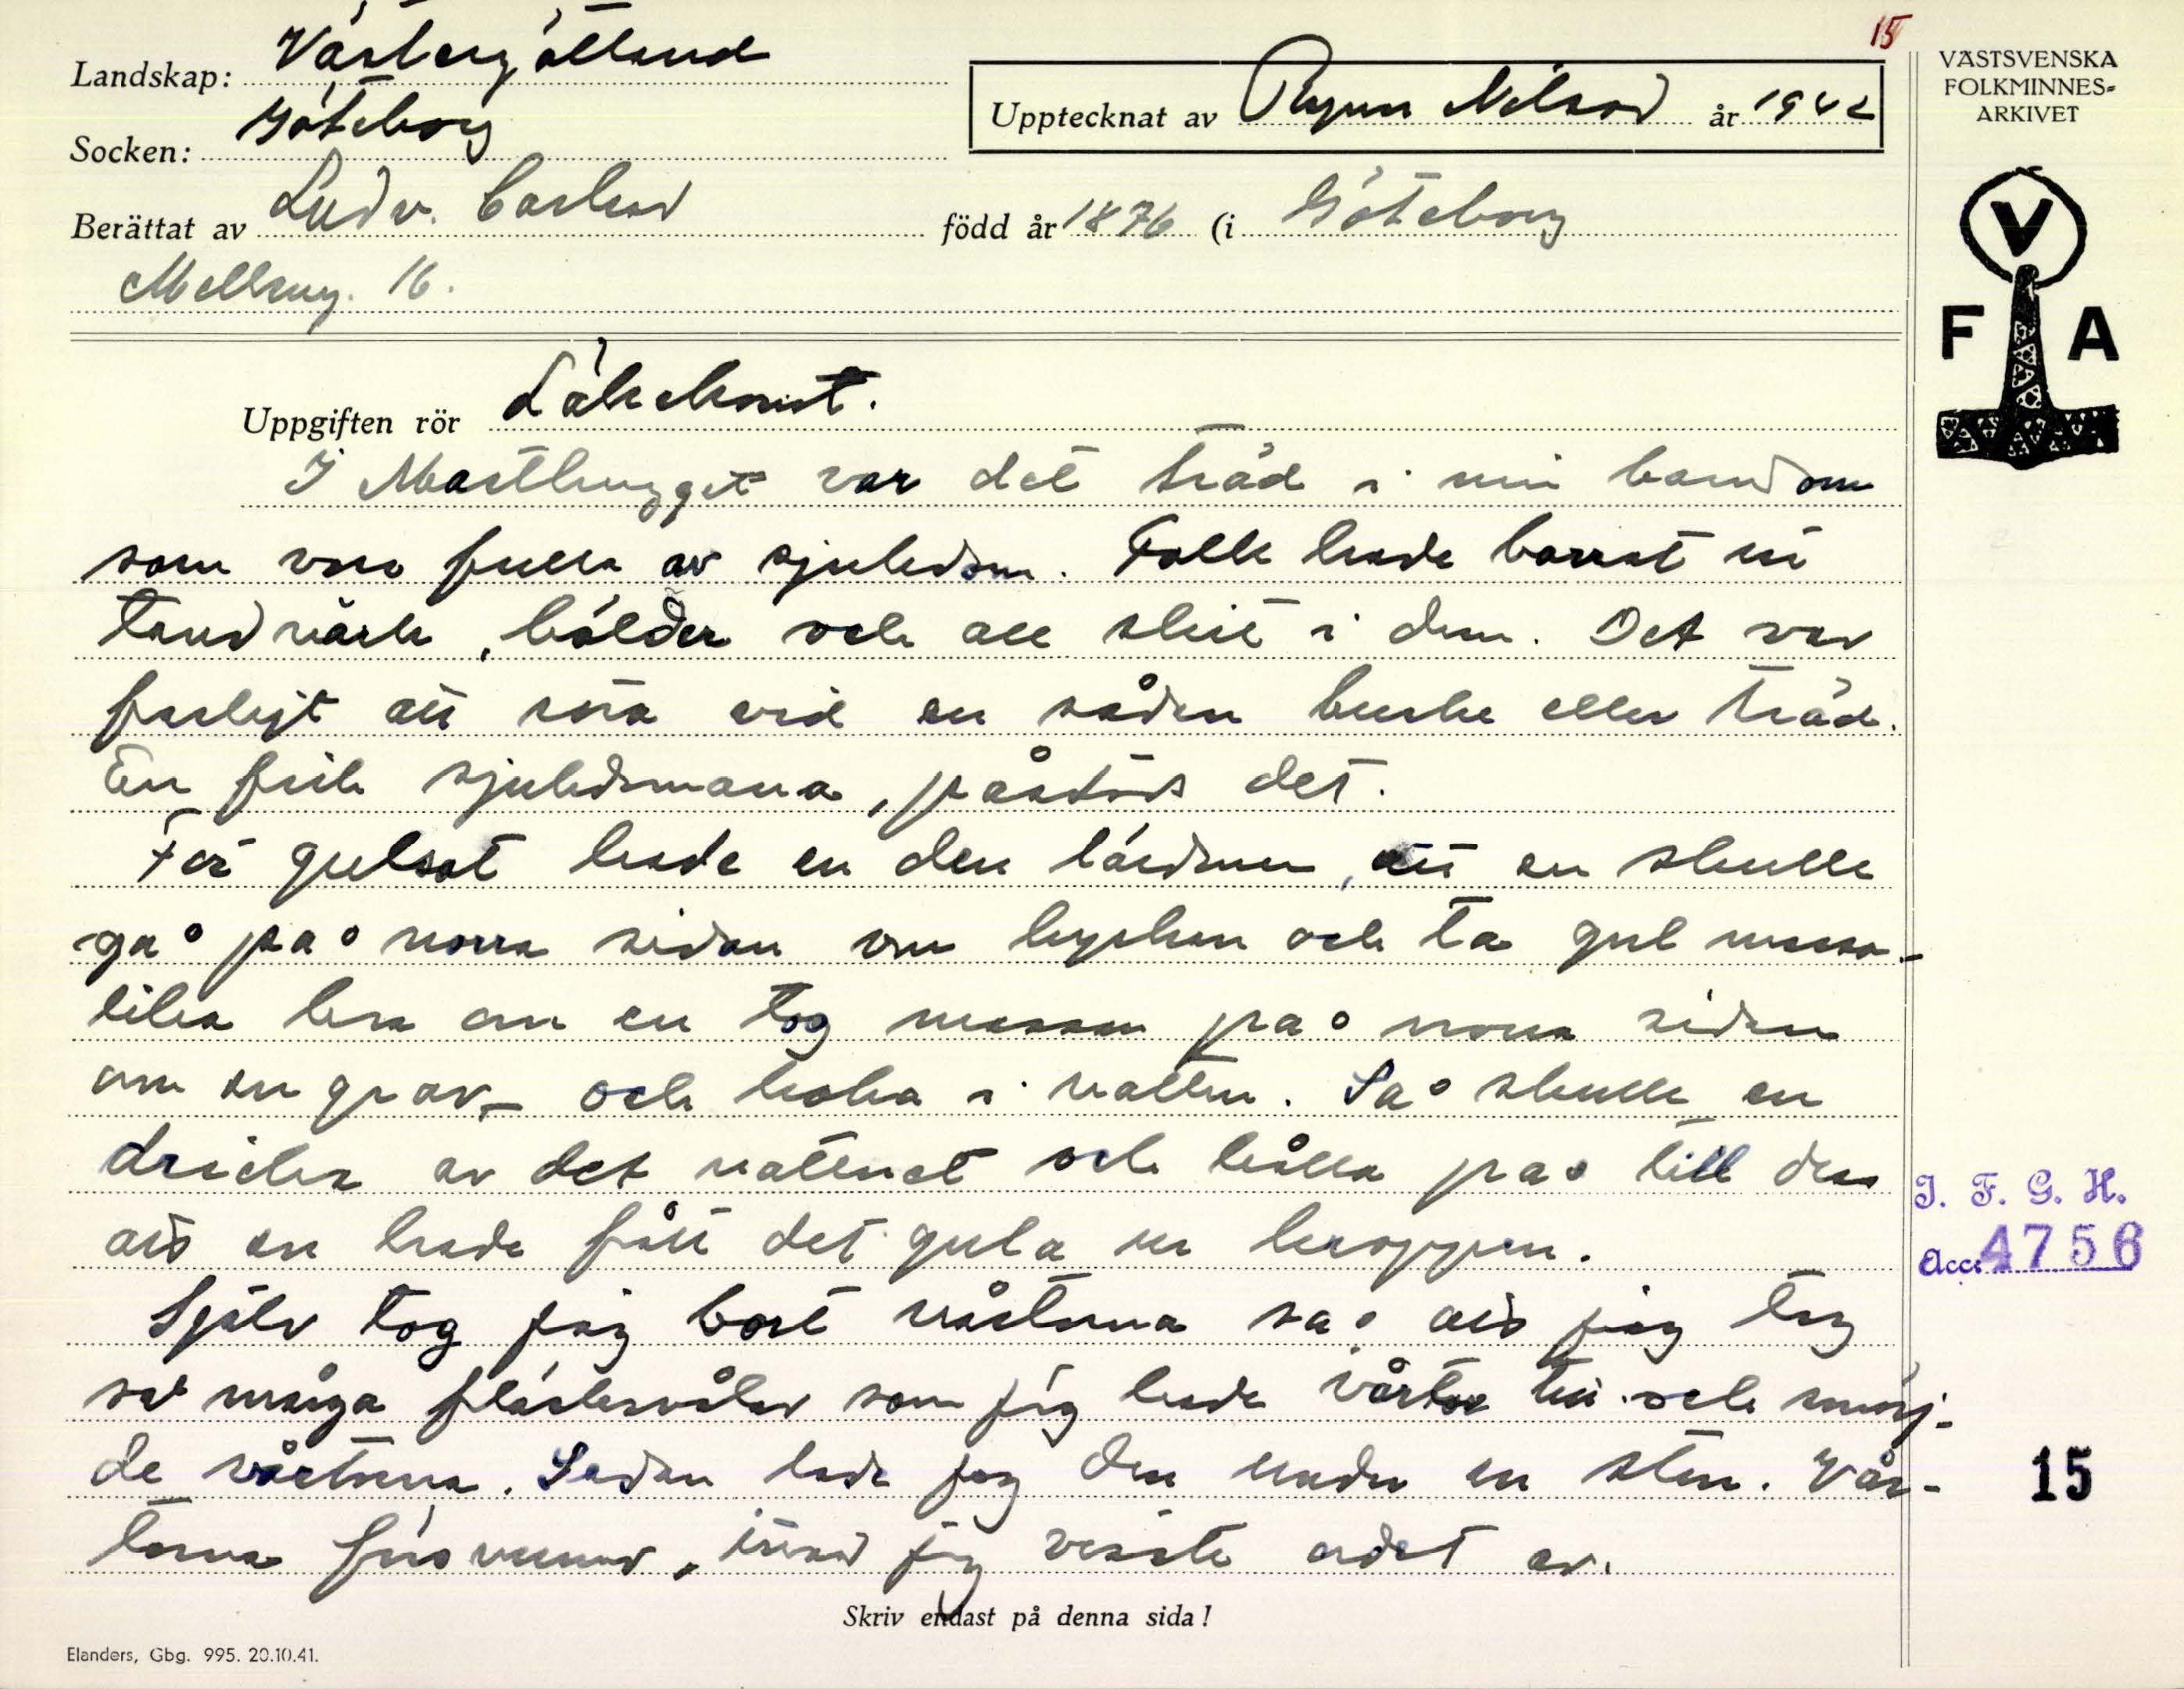 15
Landskap: Västergötland
Socken: Göteborg
Upptecknat av Ragnar Nilsson år 1942
Berättat av Ludv. Carlson född år 1876 (i Göteborg
Mellang. 16.
VÄSTSVENSKA
FOLKMINNES-
ARKIVET
V
F A
Uppgiften rör Läkekonst.
I Masthugget var det träd i min barndom
som voro fulla av sjukdom. Folk hade borrat in
tandvärk, bölder och all skit i dem. Det var
farligt att röra vid en sådan buske eller träd.
En fick sjukdomarna, påstods det.
För gulsot hade en den lärdomen, att en skulle
gå på norra sidan om kyrkan och ta gul mossa -
lika bra om en tog mossan på norra sidan
om en grav - och koka i vatten. Så skulle en
dricka av det vattnet och hålla på till dess
att en hade fått det gula ur kroppen.
Själv tog jag bort vårtorna så att jag tog
så många fläsksvålar som jag hade vårtor till och smörj-
de vårtorna. Sedan lade jag dem under en sten. Vår-
torna försvunno, innan jag visste ordet av.
I. F. G. H.
Acc. 4756
15
Skriv endast på denna sida!
Elanders, Gbg. 995. 20.10.41.